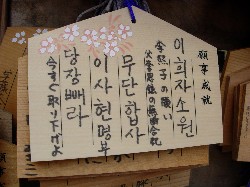 願事成就
이희자소원
李熙子の願い
무단합사
父李思鉉の無断合祀
이사현명부
당장빼라
今すぐ取り下げよ